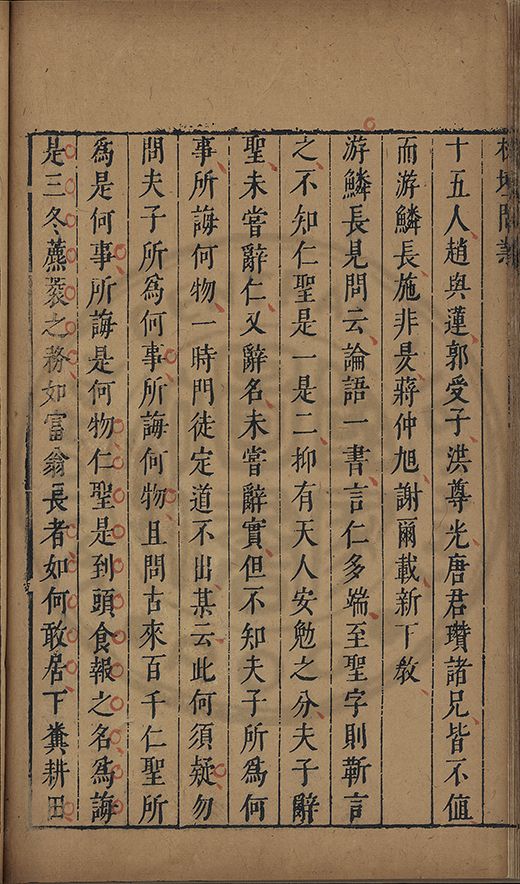 榕壇問業
十五人趙與蓮郭受子洪尊光唐君瓚諸兄皆不值
而游鱗長施非炅蔣仲旭謝爾載新下教
游鱗長見問云論語一書言仁多端至聖字則靳言
之不知仁聖是一是二抑有天人安勉之分夫子辭
聖未嘗辭仁又辭名未嘗辭實但不知夫子所為何
事所誨何物一時門徒定道不出某云此何須疑勿
問夫子所為何事所誨何物且問古來百千仁聖所
為是何事所誨是何物仁聖是到頭食報之名為誨
是三冬藨蔉之務如富翁長者如何敢居下糞耕田